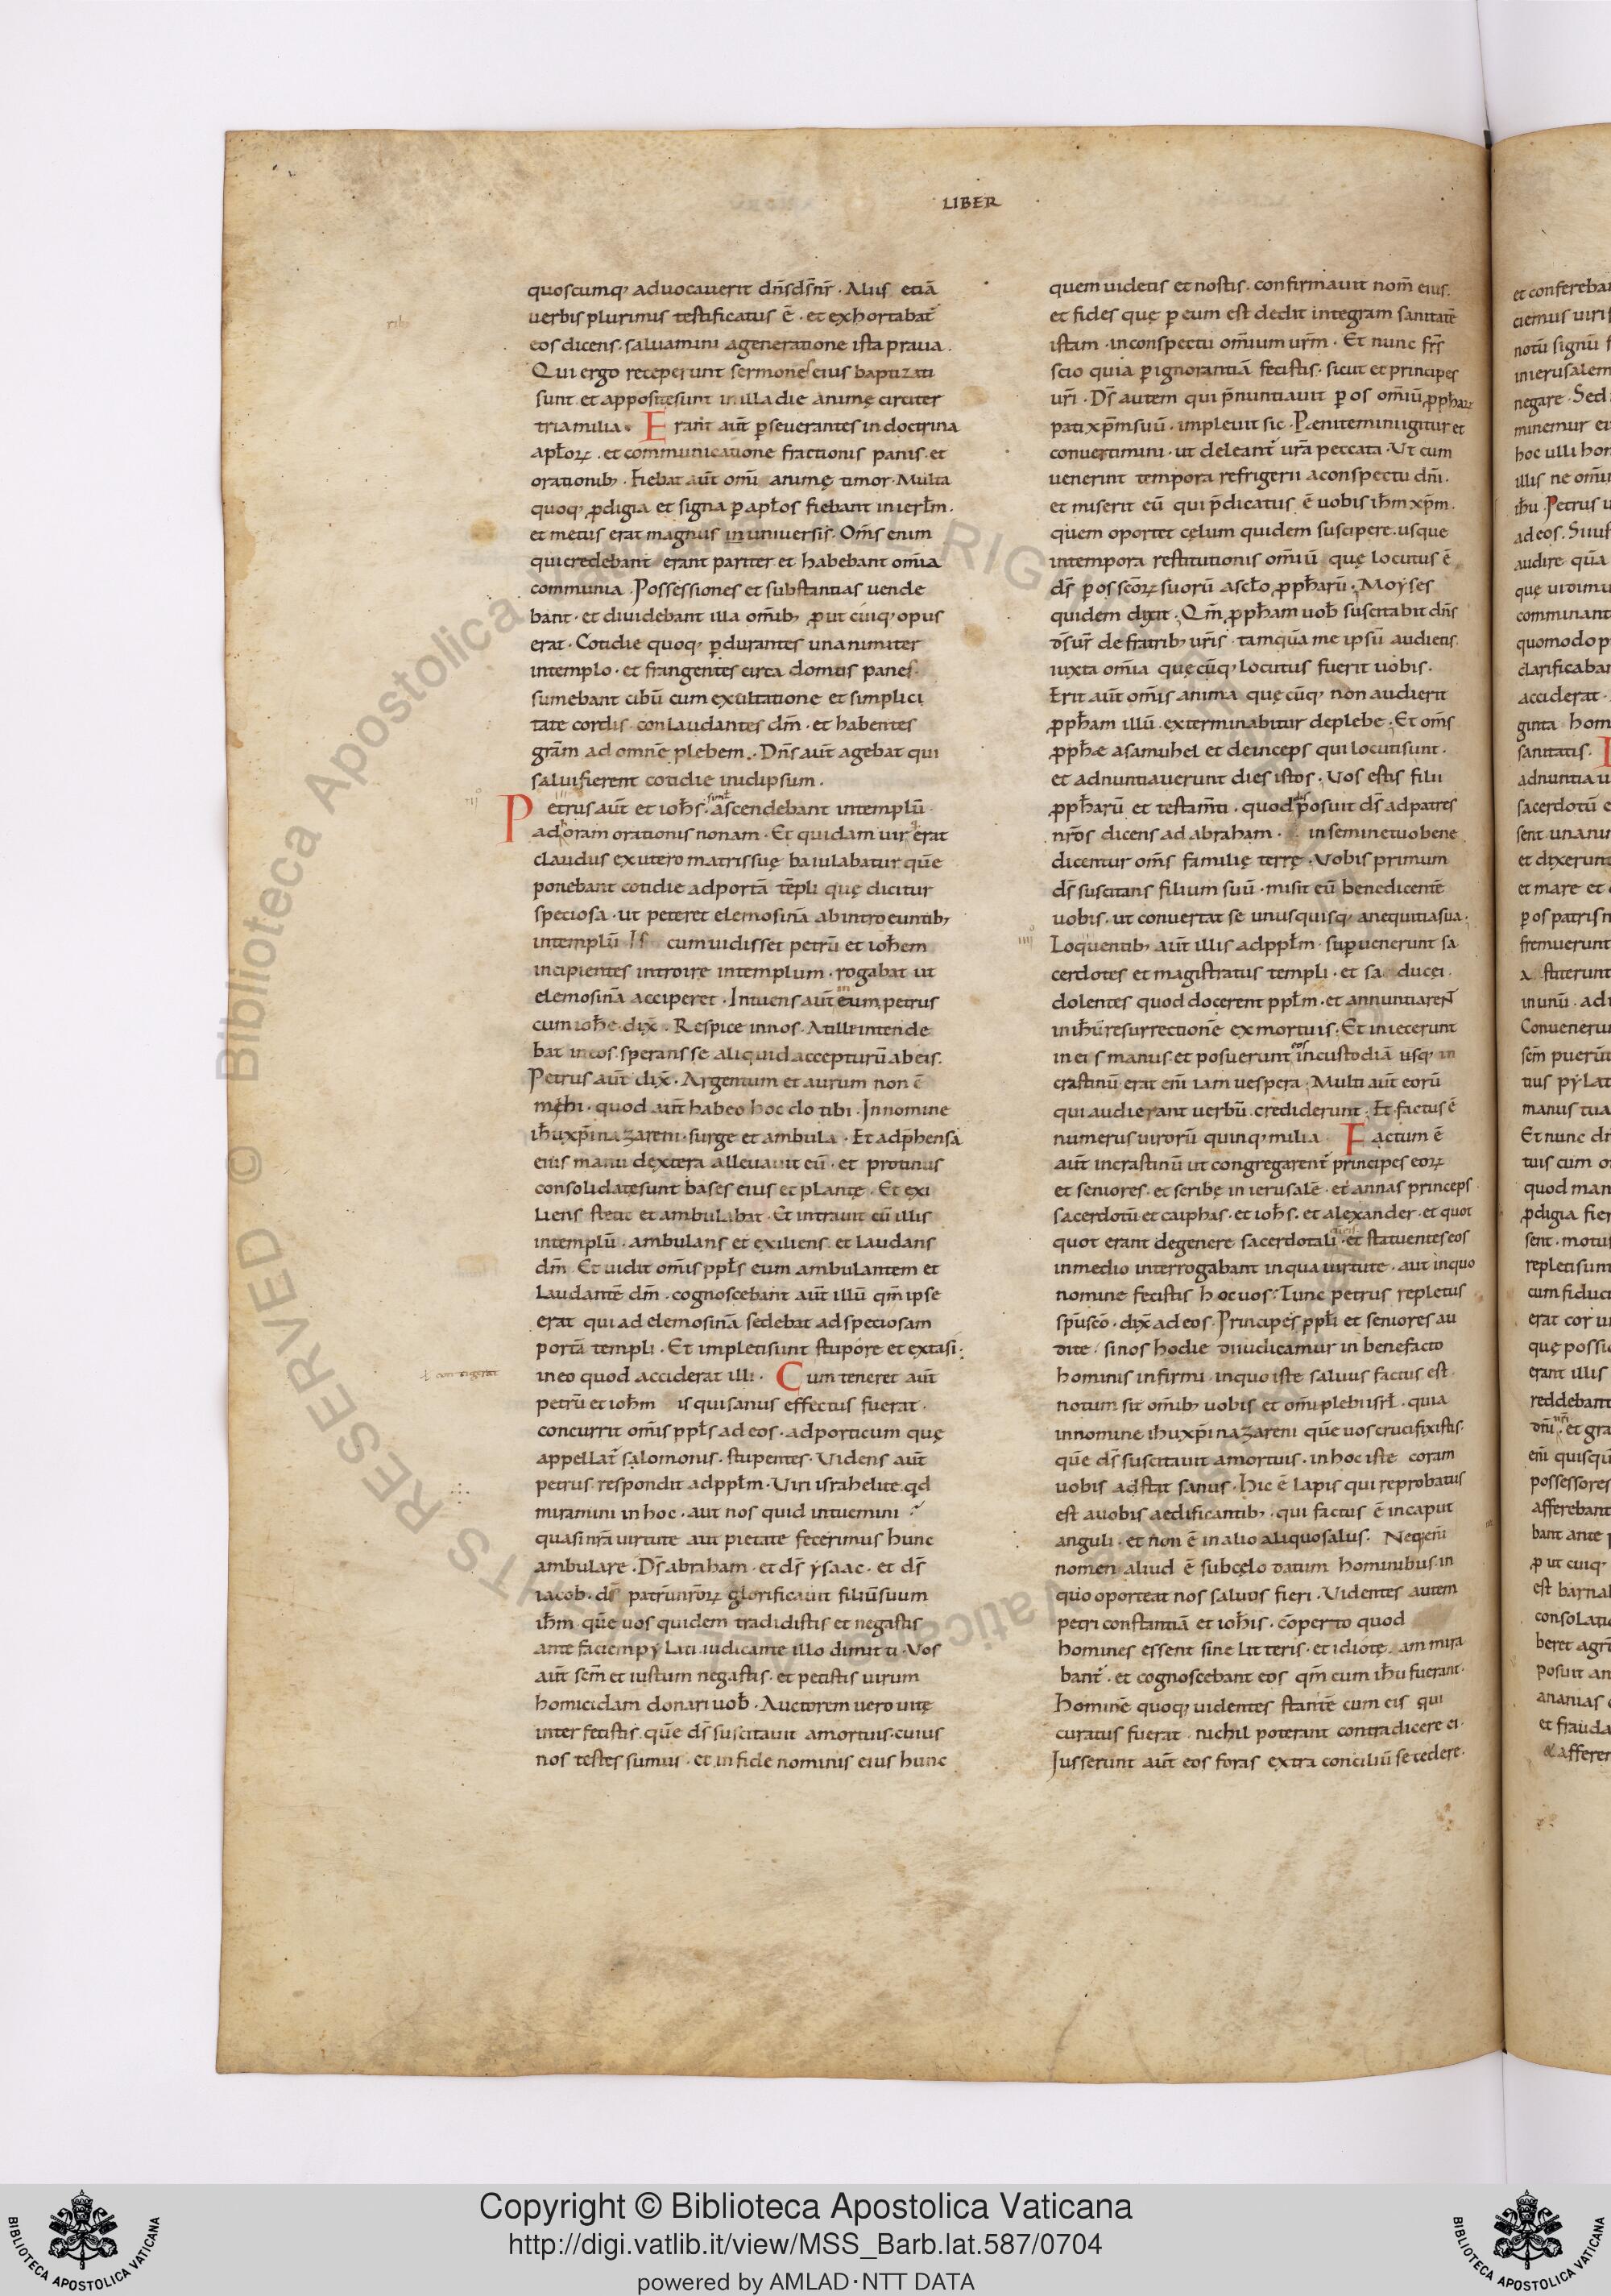 LIBER
quoscumq; aduocauerit dn̄s ds̄ nr̄. Aliis etiā
uerbis plurimis testificatus ē. et exhortabat̄
eos dicens. saluamini a generatione ista praua.
Qui ergo receperunt sermonē eius baptizati
sunt. et apposite sunt in illa die animę circiter
tria milia. Erant aūt pseuerantes in doctrina
aptōrꝝ. et communicatione fractionis panis. et
orationib;. Fiebat aūt omī animę timor. Multa
quoq; pdigia et signa p aptōs fiebant in ierlm̄.
et metus erat magnus in uniuersis. Om̄s enim
qui credebant erant pariter. et habebant om̄ia
communia. Possessiones et substantias uende
bant. et diuidebant illa om̄ib; put cuiq; opus
erat. Cotidie quoq; pdurantes unanimiter
in templo. et frangentes circa domus panes.
sumebant cibū cum exultatione et simplici
tate cordis. conlaudantes dm̄. et habentes
grām ad omnē plebem. Dn̄s aūt agebat qui
salui fierent cotidie in idipsum.
Petrus aūt et ioh̄s. ascendebant in templū
ad horam orationis nonam. Et quidam uir erat
claudus ex utero matris suę baiulabatur quē
ponebant cotidie ad portā tēpli quę dicitur
speciosa. ut peteret elemosinā ab introeuntib;
in templū Is cum uidisset petrū et ioh̄em
incipientes introire in templum. rogabat ut
elemosinā acciperet. Intuens aūt eum petrus
cum ioh̄e. dix̄. Respice in nos. At ille intende
bat in eos. sperans se aliquid accepturū ab eis.
Petrus aūt dix̄. Argentum et aurum non ē
mihi. quod aūt habeo hoc do tibi. In nomine
ih̄u xp̄i nazareni. surge et ambula. Et adp̄hensa
eius manu dextera alleuauit eū. et protinus
consolidate sunt bases eius et plantę. Et exi
liens stetit et ambulabat. Et intrauit cū illis
in templū. ambulans et exiliens et laudans
dm̄. Et uidit om̄is ppl̄s eum ambulantem et
laudantē dm̄. cognoscebant aūt illū qm̄ ipse
erat qui ad elemosinā sedebat ad speciosam
portā templi. Et impleti sunt stupore et extasi.
in eo quod acciderat illi. Cum teneret aūt
petrū et ioh̄m is qui sanus effectus fuerat.
concurrit om̄is ppl̄s ad eos. ad porticum quę
appellat̄ salomonis. stupentes. Videns aūt
petrus. respondit ad ppl̄m. Viri israhelite. qd
miramini in hoc. aut nos quid intuemini
quasi nrā uirtute aut pietate fecerimus hunc
ambulare. Ds̄ abraham. et ds̄ ysaac. et ds̄
iacob. ds̄ patrū nrōrꝝ glorificauit filiū suum
ih̄m. quē uos quidem tradidistis et negastis
ante faciem pylati. iudicante illo dimitti. Vos
aūt sc̄m et iustum negastis. et petistis uirum
homicidam donari uob̄. Auctorem uero uitę
interfecistis. quē ds̄ suscitauit a mortuis. cuius
nos testes sumus. et in fide nominis eius hunc
quem uidetis et nostis. confirmauit nom̄ eius.
et fides quę p eum est dedit integram sanitatē
istam. in conspectu om̄ium urm̄. Et nunc fr̄s
scio quia p ignorantiā fecistis. sicut et principes
urī. Ds̄ autem qui p̄nuntiauit p os om̄iū pphaꝝ
pati xp̄m suū. impleuit sic. Pęnitemini igitur et
conuertimini. ut deleant̄ urā peccata. Ut cum
uenerint tempora refrigerii a conspectu dn̄i.
et miserit eū qui p̄dicatus ē uobis ih̄m xp̄m.
quem oportet cęlum quidem suscipere. usque
in tempora restitutionis om̄iū quę locutus ē
ds̄ p os scōrꝝ suorū a sc̄lo pph̄arū. Moyses
quidem dixit. Qm̄ pph̄am uob̄ suscitabit dn̄s
ds̄ ur̄ de fratrib; urīs. tamquā me ipsū audietis.
iuxta om̄ia quęcūq; locutus fuerit uobis.
Erit aūt om̄is anima quęcūq; non audierit
pph̄am illū. exterminabitur de plebe. Et om̄s
pph̄æ a samuhel et deinceps qui locuti sunt.
et adnuntiauerunt dies istos. Vos estis filii
pph̄arū et testam̄ti. quod posuit ds̄ ad patres
nrōs dicens ad abraham. in semine tuo bene
dicentur om̄s familię terrę. Vobis primum
ds̄ suscitans filium suū. misit eū benedicentē
uobis. ut conuertat se unusquisq; a nequitia sua.
Loquentib; aūt illis ad ppl̄m. supuenerunt sa
cerdotes et magistratus templi. et saducei.
dolentes quod docerent ppl̄m. et annuntiarent
in ih̄u resurrectionē ex mortuis. Et iniecerunt
in eis manus. et posuerunt eos in custodiā usq; in
crastinū. erat enī iam uespera. Multi aūt eorū
qui audierant uerbū. crediderunt. Et factus ē
numerus uirorū quinq; milia. Factum ē
aūt in crastinū ut congregarent̄ principes eorꝝ
et seniores. et scribę in ierusalē. et annas princeps
sacerdotū et caiphas. et ioh̄s. et alexander. et quot
quot erant de genere sacerdotali. et statuentes eos
in medio interrogabant in qua uirtute. aut in quo
nomine fecistis hoc uos. Tunc petrus repletus
spū scō. dix̄ ad eos. Principes ppl̄i et seniores au
dite. si nos hodie diiudicamur in benefacto
hominis infirmi. in quo iste saluus factus est.
notum sit om̄ib; uobis et om̄i plebi isrl̄. quia
in nomine ih̄u xp̄i nazareni quē uos crucifixistis.
quē ds̄ suscitauit a mortuis. in hoc iste coram
uobis adstat sanus. Hic ē lapis qui reprobatus
est a uobis aedificantib;. qui factus ē in caput
anguli. et non ē in alio aliquo salus. Neq; enī
nomen aliud ē sub cęlo datum hominibus in
quo oporteat nos saluos fieri. Videntes autem
petri constantiā et ioh̄is. cōperto quod
homines essent sine litteris. et idiotę. ammira
bant̄. et cognoscebant eos qm̄ cum ih̄u fuerant.
Hominē quoq; uidentes stantē cum eis qui
curatus fuerat. nichil poterant contradicere ei.
Iusserunt aūt eos foras extra conciliū secedere.
Copyright © Biblioteca Apostolica Vaticana
http://digi.vatlib.it/view/MSS_Barb.lat.587/0704
powered by AMLAD·NTT DATA